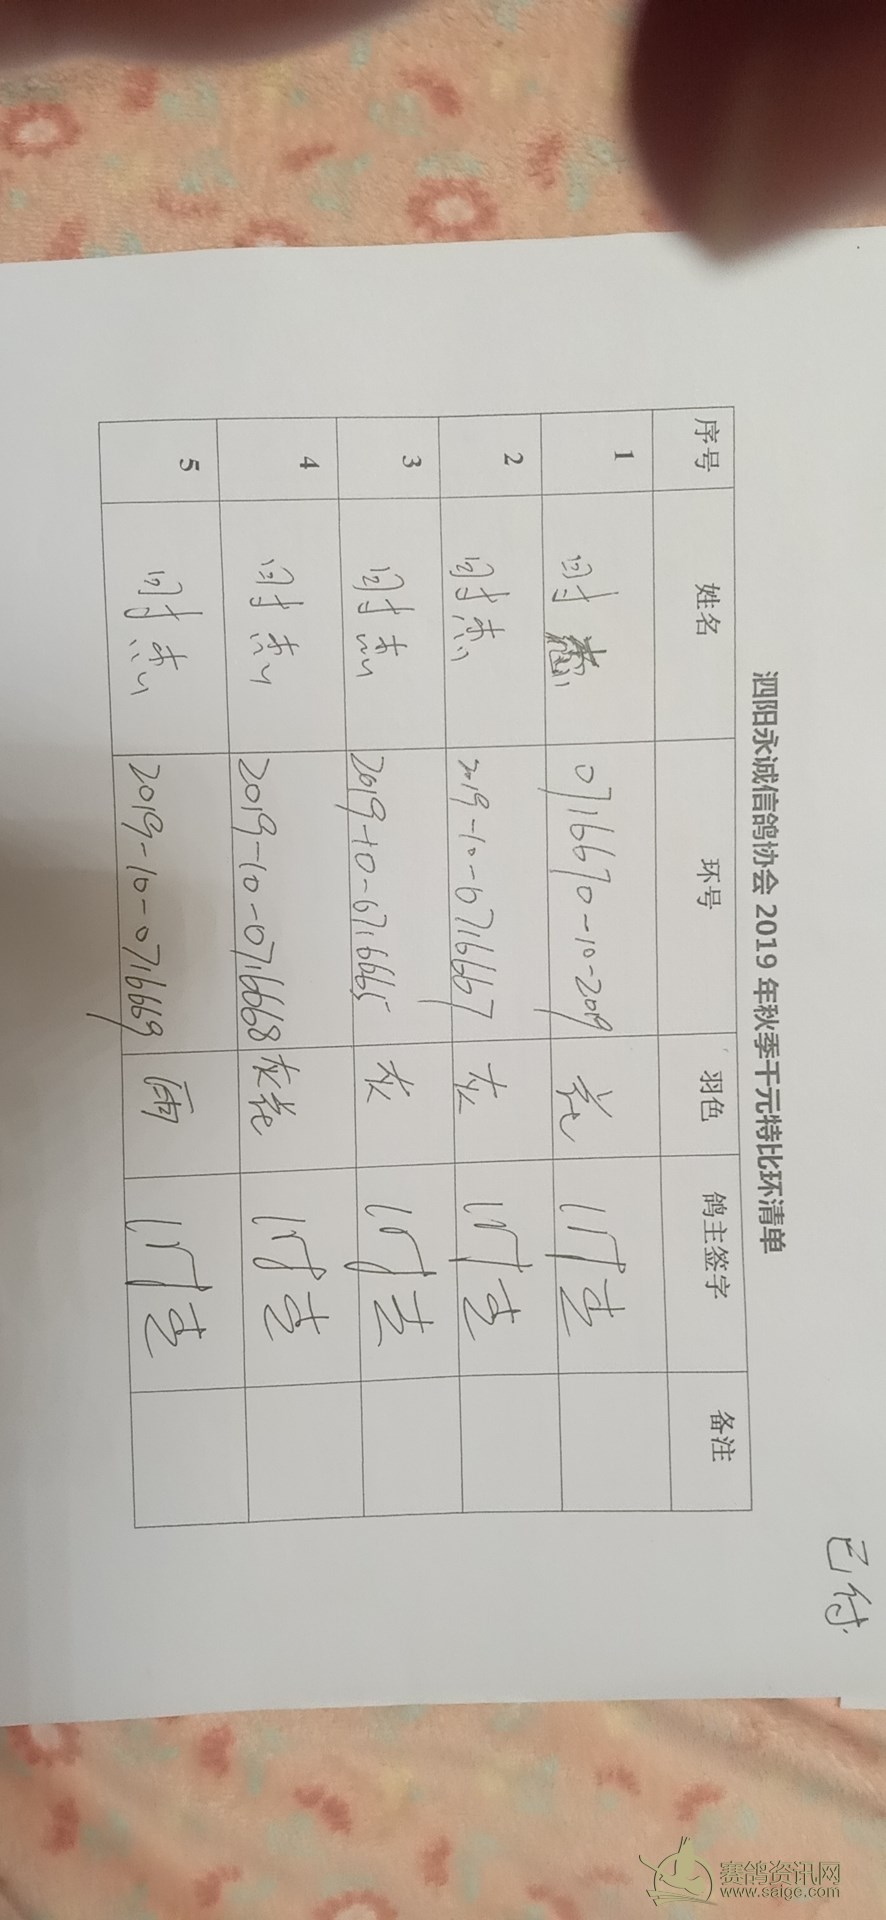 已付
泗阳永诚信鸽协会 2019 年秋季千元特比环清单
序号 姓名 环号 羽色 鸽主签字 备注
1 时杰 0716670-10-2019 花
2 时杰 2019-10-0716667 灰
3 时杰 2019-10-0716665 灰
4 时杰 2019-10-0716668 灰花
5 时杰 2019-10-0716669 雨
赛鸽资讯网
www.saigc.com